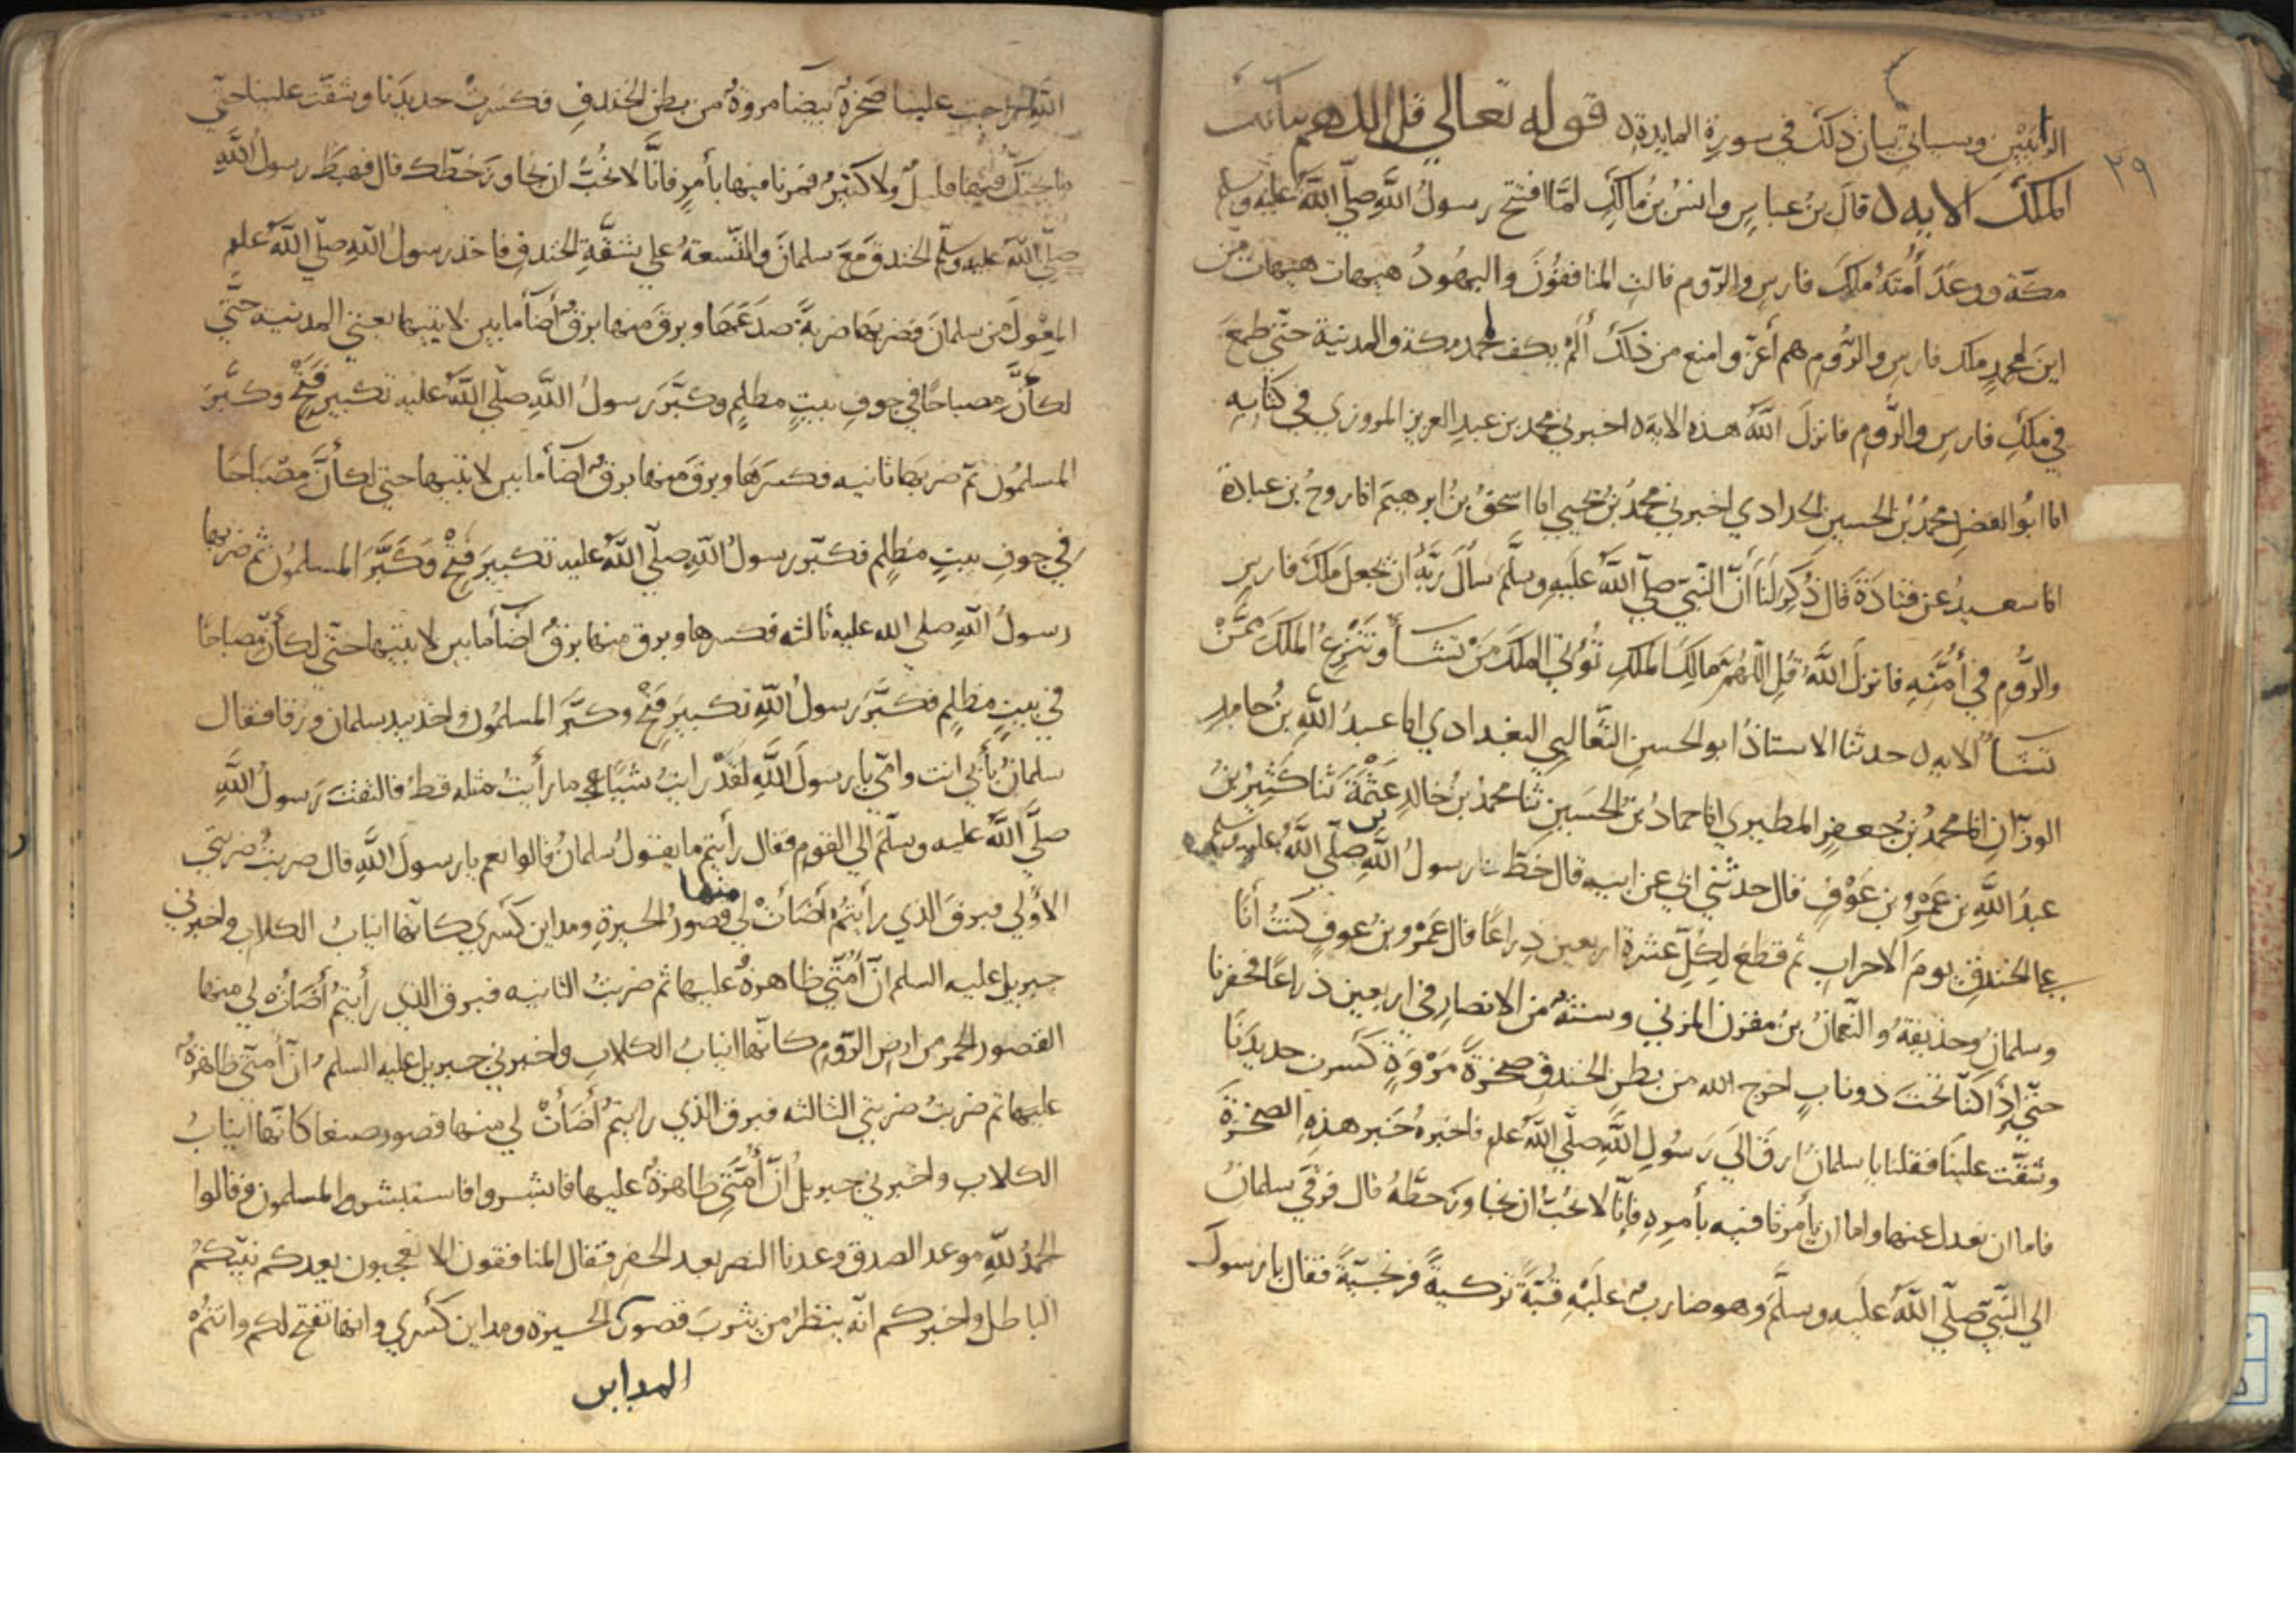 ٢٩
الزانيين وسياتي بيان ذلك في سورة المايدة ه قوله تعالي قل اللهم مالك
الملك الايه ه قال بن عباس وانس بن مالك لما افتتح رسول الله صلي الله عليه وسلم
مكة ووعد أمته ملك فارس والروم قالت المنافقون واليهود هيهات هيهات من
اين لمحمد ملك فارس والروم هم أعز وامنع من ذلك ألم يكف محمد مكة والمدينة حتي طمع
في ملك فارس والروم فانزل الله هذه الاية ه اخبرني محمد بن عبد العزيز المروزي في كتابه
انا ابو الفضل محمد بن الحسين الحدادي اخبرني محمد بن يحيي انا اسحق بن ابرهيم انا روح بن عبادة
انا سعيد عن قتادة قال ذكر لنا أن النبي صلي الله عليه وسلم سأل ربه أن يجعل ملك فارس
والروم في أمته فانزل الله قل اللهم مالك الملك تؤتي الملك من تشأ وتنزع الملك ممن
تشأ الايه ه حدثنا الاستاذ ابو الحسن الثعالبي البغدادي انا عبد الله بن حامد
الوزان انا محمد بن جعفر المطيري انا حماد بن الحسين ثنا محمد بن خالد عثمة ثنا كثير بن
عبد الله بن عمرو بن عوف قال حدثني ابي عن ابيه قال خط رسول الله صلي الله عليه وسلم
علي الخندق يوم الاحزاب ثم قطع لكل عشرة اربعين ذراعا قال عمرو بن عوف كنت أنا
وسلمان وحذيفة والنعمان بن مقرن المزني وستة من الانصار في اربعين ذراعا فحفرنا
حتي إذا كنا تحت ذوناب اخرج الله من بطن الخندق صخرة مروة كسرت حديدنا
وشقت علينا فقلنا يا سلمان ارق الي رسول الله صلي الله علم فاخبره خبر هذه الصخرة
فاما ان نعدل عنها واما ان يأمرنا فيه بأمره فإنا لا نحب ان نجاوز خطه قال فرقي سلمان
الي النبي صلي الله عليه وسلم وهو ضارب عليه قبة تركية فقال يا رسول
الله خرجت علينا صخرة بيضا مروة من بطن الخندق فكسرت حديدنا وشقت علينا حتي
ما يحتك فيها قليل ولا كثير فمرنا فيها بأمر فانا لا نحب ان نجاوز خطك قال فهبط رسول الله
صلي الله عليه وسلم الخندق مع سلمان والتسعة علي شقة الخندق فاخذ رسول الله صلي الله علم
المعول من سلمان فضربها ضربة صدعها وبرق منها برق أضأ ما بين لابتيها يعني المدينة حتي
لكأن مصباحا في جوف بيت مظلم وكبر رسول الله صلي الله عليه تكبير فتح وكبر
المسلمون ثم ضربها ثانيه فكسرها وبرق منها برق اضأ ما بين لابتيها حتي لكأن مصباحا
في جوف بيت مظلم فكبر رسول الله صلي الله عليه تكبير فتح وكبر المسلمون ثم ضربها
رسول الله صلي الله عليه ثالثه فكسرها وبرق منها برق اضأ ما بين لابتيها حتي لكأن مصباحا
في بيت مظلم فكبر رسول الله تكبير فتح وكبر المسلمون واخذ بيد سلمان ورقا فقال
سلمان بأبي انت وامي يا رسول الله لقد رايت شيئا ما رأيت مثله قط فالتفت رسول الله
صلي الله عليه وسلم الي القوم فقال رأيتم ما يقول سلمان قالوا نعم يا رسول الله قال ضربت ضربتي
الأولي فبرق الذي رأيتم أضأت لي منها قصور الحيرة ومداين كسري كانها انياب الكلاب واخبرني
جبريل عليه السلم ان أمتي ظاهرة عليها ثم ضربت الثانيه فبرق الذي رأيتم أضأت لي منها
القصور الحمر من ارض الروم كانها انياب الكلاب واخبرني جبريل عليه السلم ان أمتي ظاهرة
عليها ثم ضربت ضربتي الثالثه فبرق الذي رايتم أضأت لي منها قصور صنعا كانها انياب
الكلاب واخبرني جبريل ان أمتي ظاهرة عليها فابشروا فاستبشر المسلمون وقالوا
الحمد لله موعد الصدق وعدنا النصر بعد الحفر فقال المنافقون الا تعجبون يعدكم نبيكم
الباطل واخبركم انه ينظر من يثرب قصور الحيرة ومداين كسري وانها تفتح لكم وانتم